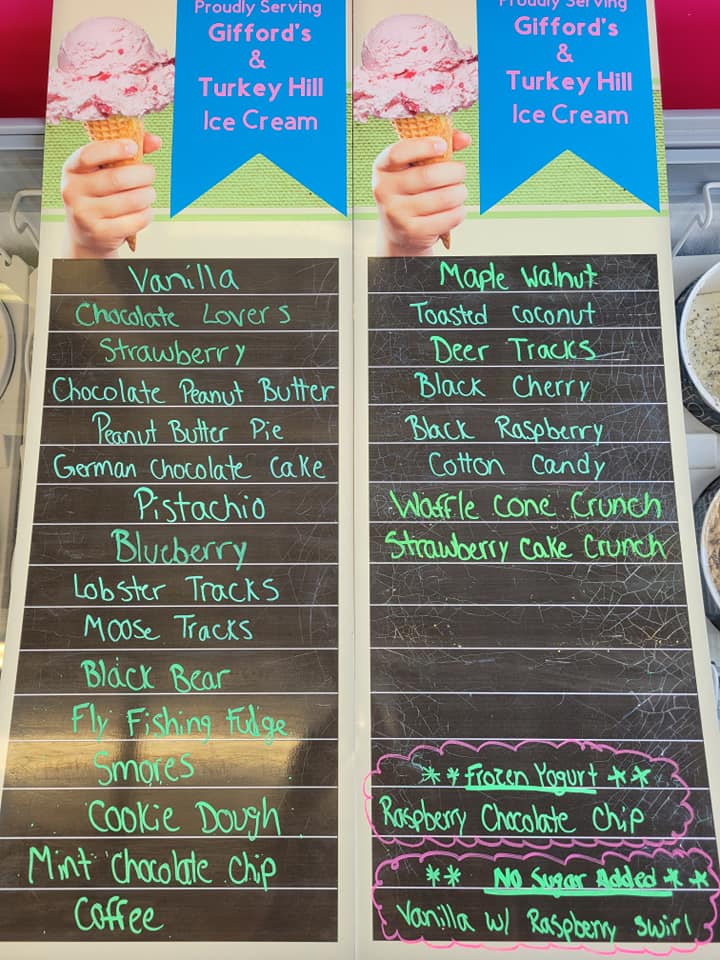 Proudly Serving
Gifford's
&
Turkey Hill
Ice Cream
Vanilla
Chocolate Lovers
Strawberry
Chocolate Peanut Butter
Peanut Butter Pie
German Chocolate Cake
Pistachio
Blueberry
Lobster Tracks
Moose Tracks
Black Bear
Fly Fishing Fudge
Smores
Cookie Dough
Mint Chocolate Chip
Coffee
Proudly Serving
Gifford's
&
Turkey Hill
Ice Cream
Maple Walnut
Toasted Coconut
Deer Tracks
Black Cherry
Black Raspberry
Cotton Candy
Waffle Cone Crunch
Strawberry Cake Crunch
** Frozen Yogurt **
Raspberry Chocolate Chip
** No Sugar Added **
Vanilla w/ Raspberry Swirl